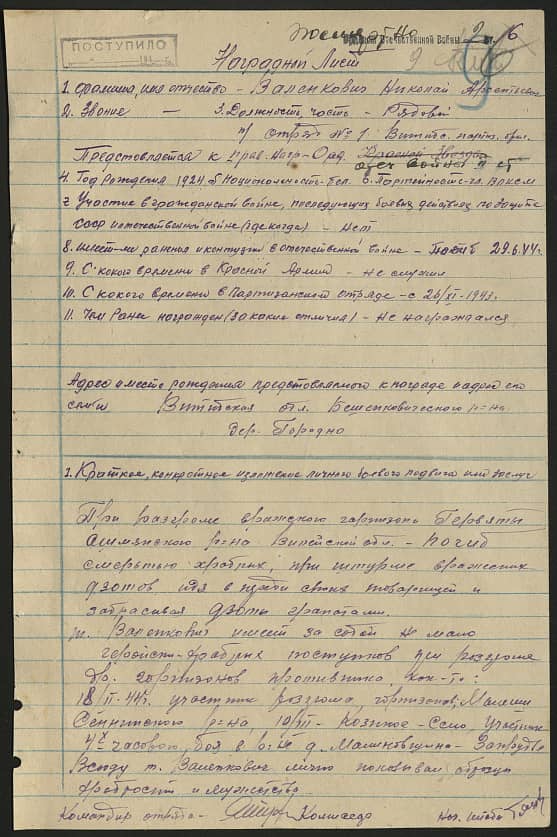 ПОСТУПИЛО
Посмертно
Орденом Отечественной Войны 2 ст.
Наградной Лист
1. Фамилия, имя отчество - Валенкович Николай
2. Звание — 3. Должность, часть - Рядовой
п/ отряд № 1 Витебс. парт. бриг.
Представляется к Прав. Нагр - Орд. Красной Звезды
отеч войны II ст
4. Год рождения 1924 5 Национальность - бел. 6. Партийность - чл. ВЛКСМ
7 Участие в гражданской войне, последующих боевых действиях по защите
СССР и отечественной войне (где когда) - Нет
8. имеет-ли ранения и контузии в отечественной войне - Погиб 29.6.44г.
9. С какого времени в Красной Армии - не служил
10. С какого времени в Партизанском отряде - с 26/XI - 1943г.
11. Чем Ранее награжден (за какие отличия) - Не награждался
Адрес и место рождения представляемого к награде и адрес его
семьи Витебская обл. Бешенковического р-на
Дер. Бородно
1. Краткое, конкретное изложение личного боевого подвига или заслуг
При разгроме вражеского гарнизона Гервяты
Ошмянского р-на Вилейской обл. - Погиб
смертью храбрых, при штурме вражеских
дзотов, идя в среди своих товарищей и
забрасывая дзоты гранатами.
т. Валенкович имеет за собой не мало
геройски-храбрых поступков при разгроме
др. гарнизонов противника, как-то:
18/II-44г. участник разгрома гарнизона
Сеннинского р-на 10/III - Козлово-Село, Участник
4х часового боя в р-не д. Малиновщино-
Всюду т. Валенкович лично показывал образцы
храбрости и мужества.
Командир отряда - Комиссар Нач. Штаба